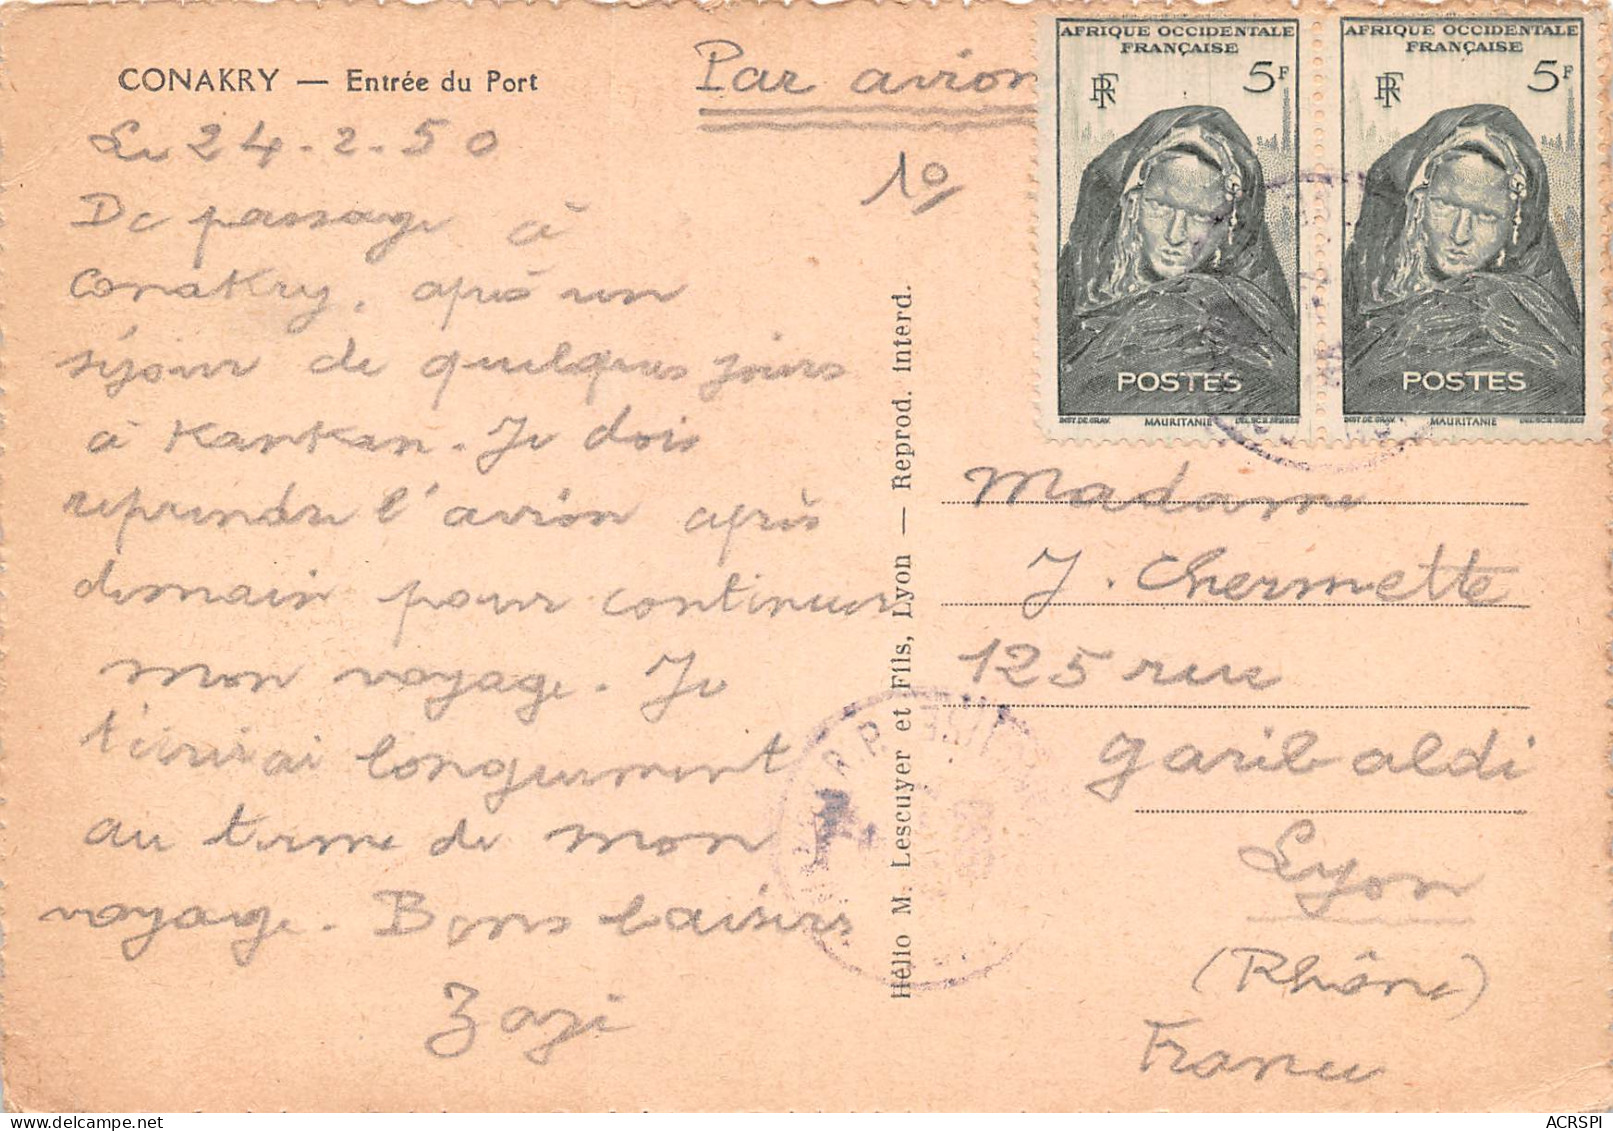 CONAKRY — Entrée du Port
Par avion
Le 24-2-50
10
De passage à
Conakry, après un
séjour de quelques jours
à Kankan. Je dois
reprendre l'avion après
demain pour continuer
mon voyage. Je
t'écrirai longuement
au terme de mon
voyage. Bons baisers
Zazi
Hélio M. Lescuyer et Fils, Lyon — Reprod. interd.
AFRIQUE OCCIDENTALE
FRANÇAISE
RF 5F
POSTES
MAURITANIE
AFRIQUE OCCIDENTALE
FRANÇAISE
RF 5F
POSTES
MAURITANIE
Madame
J. Chermette
125 rue
Garibaldi
Lyon
(Rhône)
France
ACRSPI